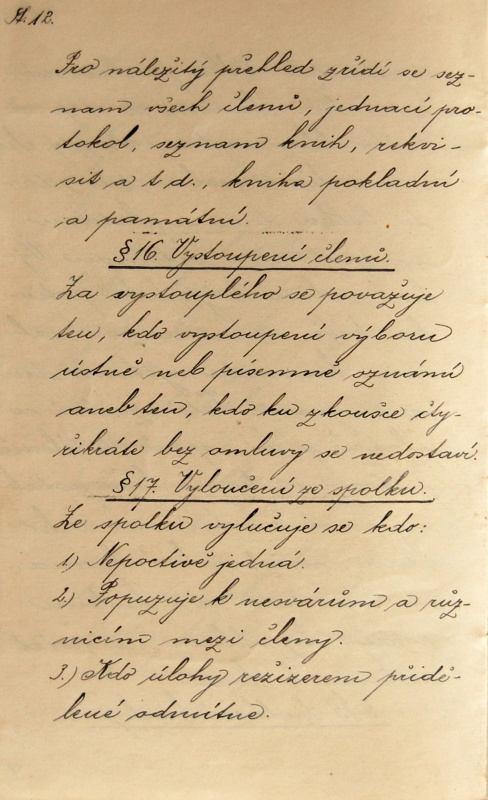 St. 12.
Pro náležitý přehled zřídí se sez-
nam všech členů, jednací pro-
tokol, seznam knih, rekvi-
sit a t d., kniha pokladní
a památní.
§ 16. Vystoupení členů.
Za vystouplého se považuje
ten, kdo vystoupení výboru
ústně neb písemně oznámí
aneb ten, kdo ku zkoušce čty-
řikráte bez omluvy se nedostaví.
§ 17. Vyloučení ze spolku.
Ze spolku vylučuje se kdo:
1.) Nepoctivě jedná.
2.) Popuzuje k nesvárům a růz-
nicím mezi členy.
3.) Kdo úlohy režizerem přidě-
lené odmítne.